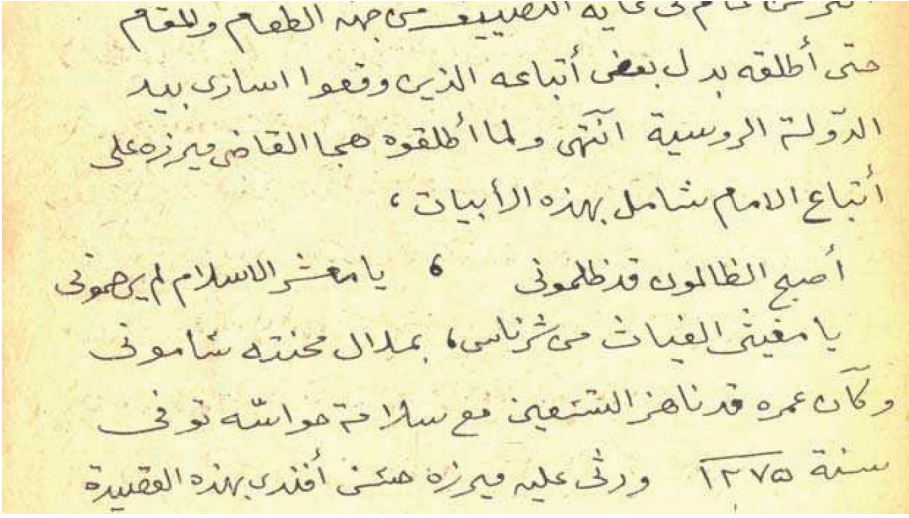 عام فى غاية التضييق من جهة الطعام والمقام
حتى أطلقه بدل بعض أتباعه الذين وقعوا اسارى بيد
الدّولة الروسية انتهى ولما أطلقوه هجا القاضى ميرزه على
أتباع الامام شامل بهذه الأبيات،
أصبح الظالمون قد ظلمونى ، يا معشر الاسلام لم يرحمونى
يا مغيثى الغياث من شر ناس، بملال محنته شامونى
وكان عمره قد ناهز التسعين مع سلامة حواسّه توفى
سنة ١٢٧٥ ورثى عليه ميرزه حسن أفندى بهذه القصيدة